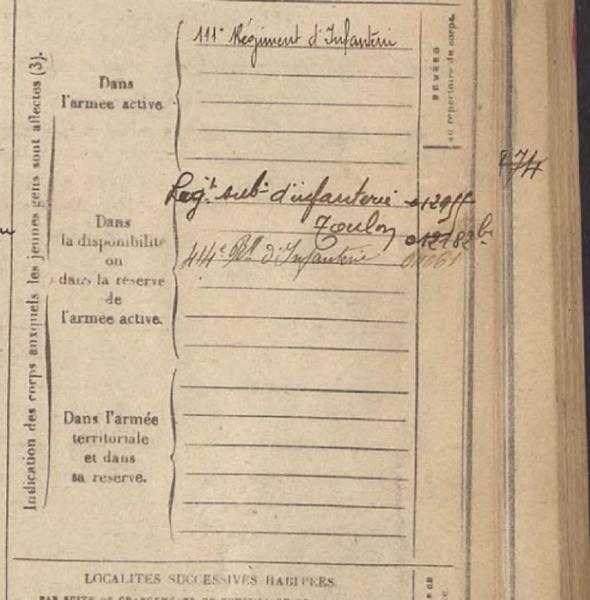 Indication des corps auxquels les jeunes gens sont affectés (3).
Dans
l'armée active
111e Régiment d'Infanterie
NUMÉRO
au répertoire du corps.
Dans
la disponibilité
ou
dans la réserve
de
l'armée active.
Regt. subn. d'infanterie
Toulon
414e Rt d'Infanterie
Dans l'armée
territoriale
et dans
sa réserve.
LOCALITÉS SUCCESSIVES HABITÉES
PAR SUITE DE CHANGEMENTS DE DOMICILE OU DE